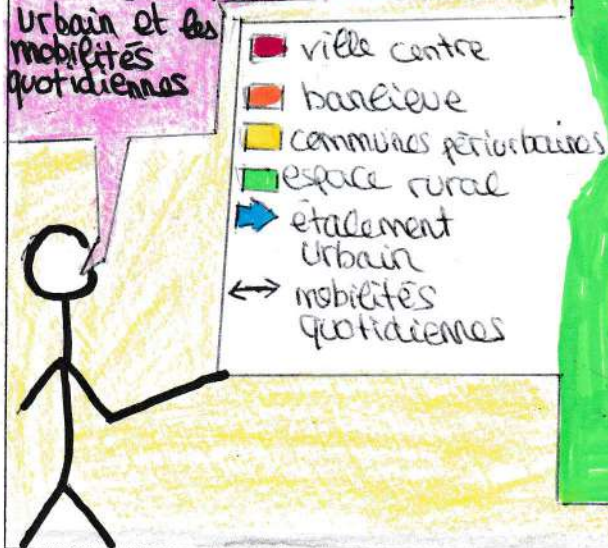 urbain et les
mobilités
quotidiennes
ville centre
banlieue
communes périurbaines
espace rural
étalement
urbain
mobilités
quotidiennes